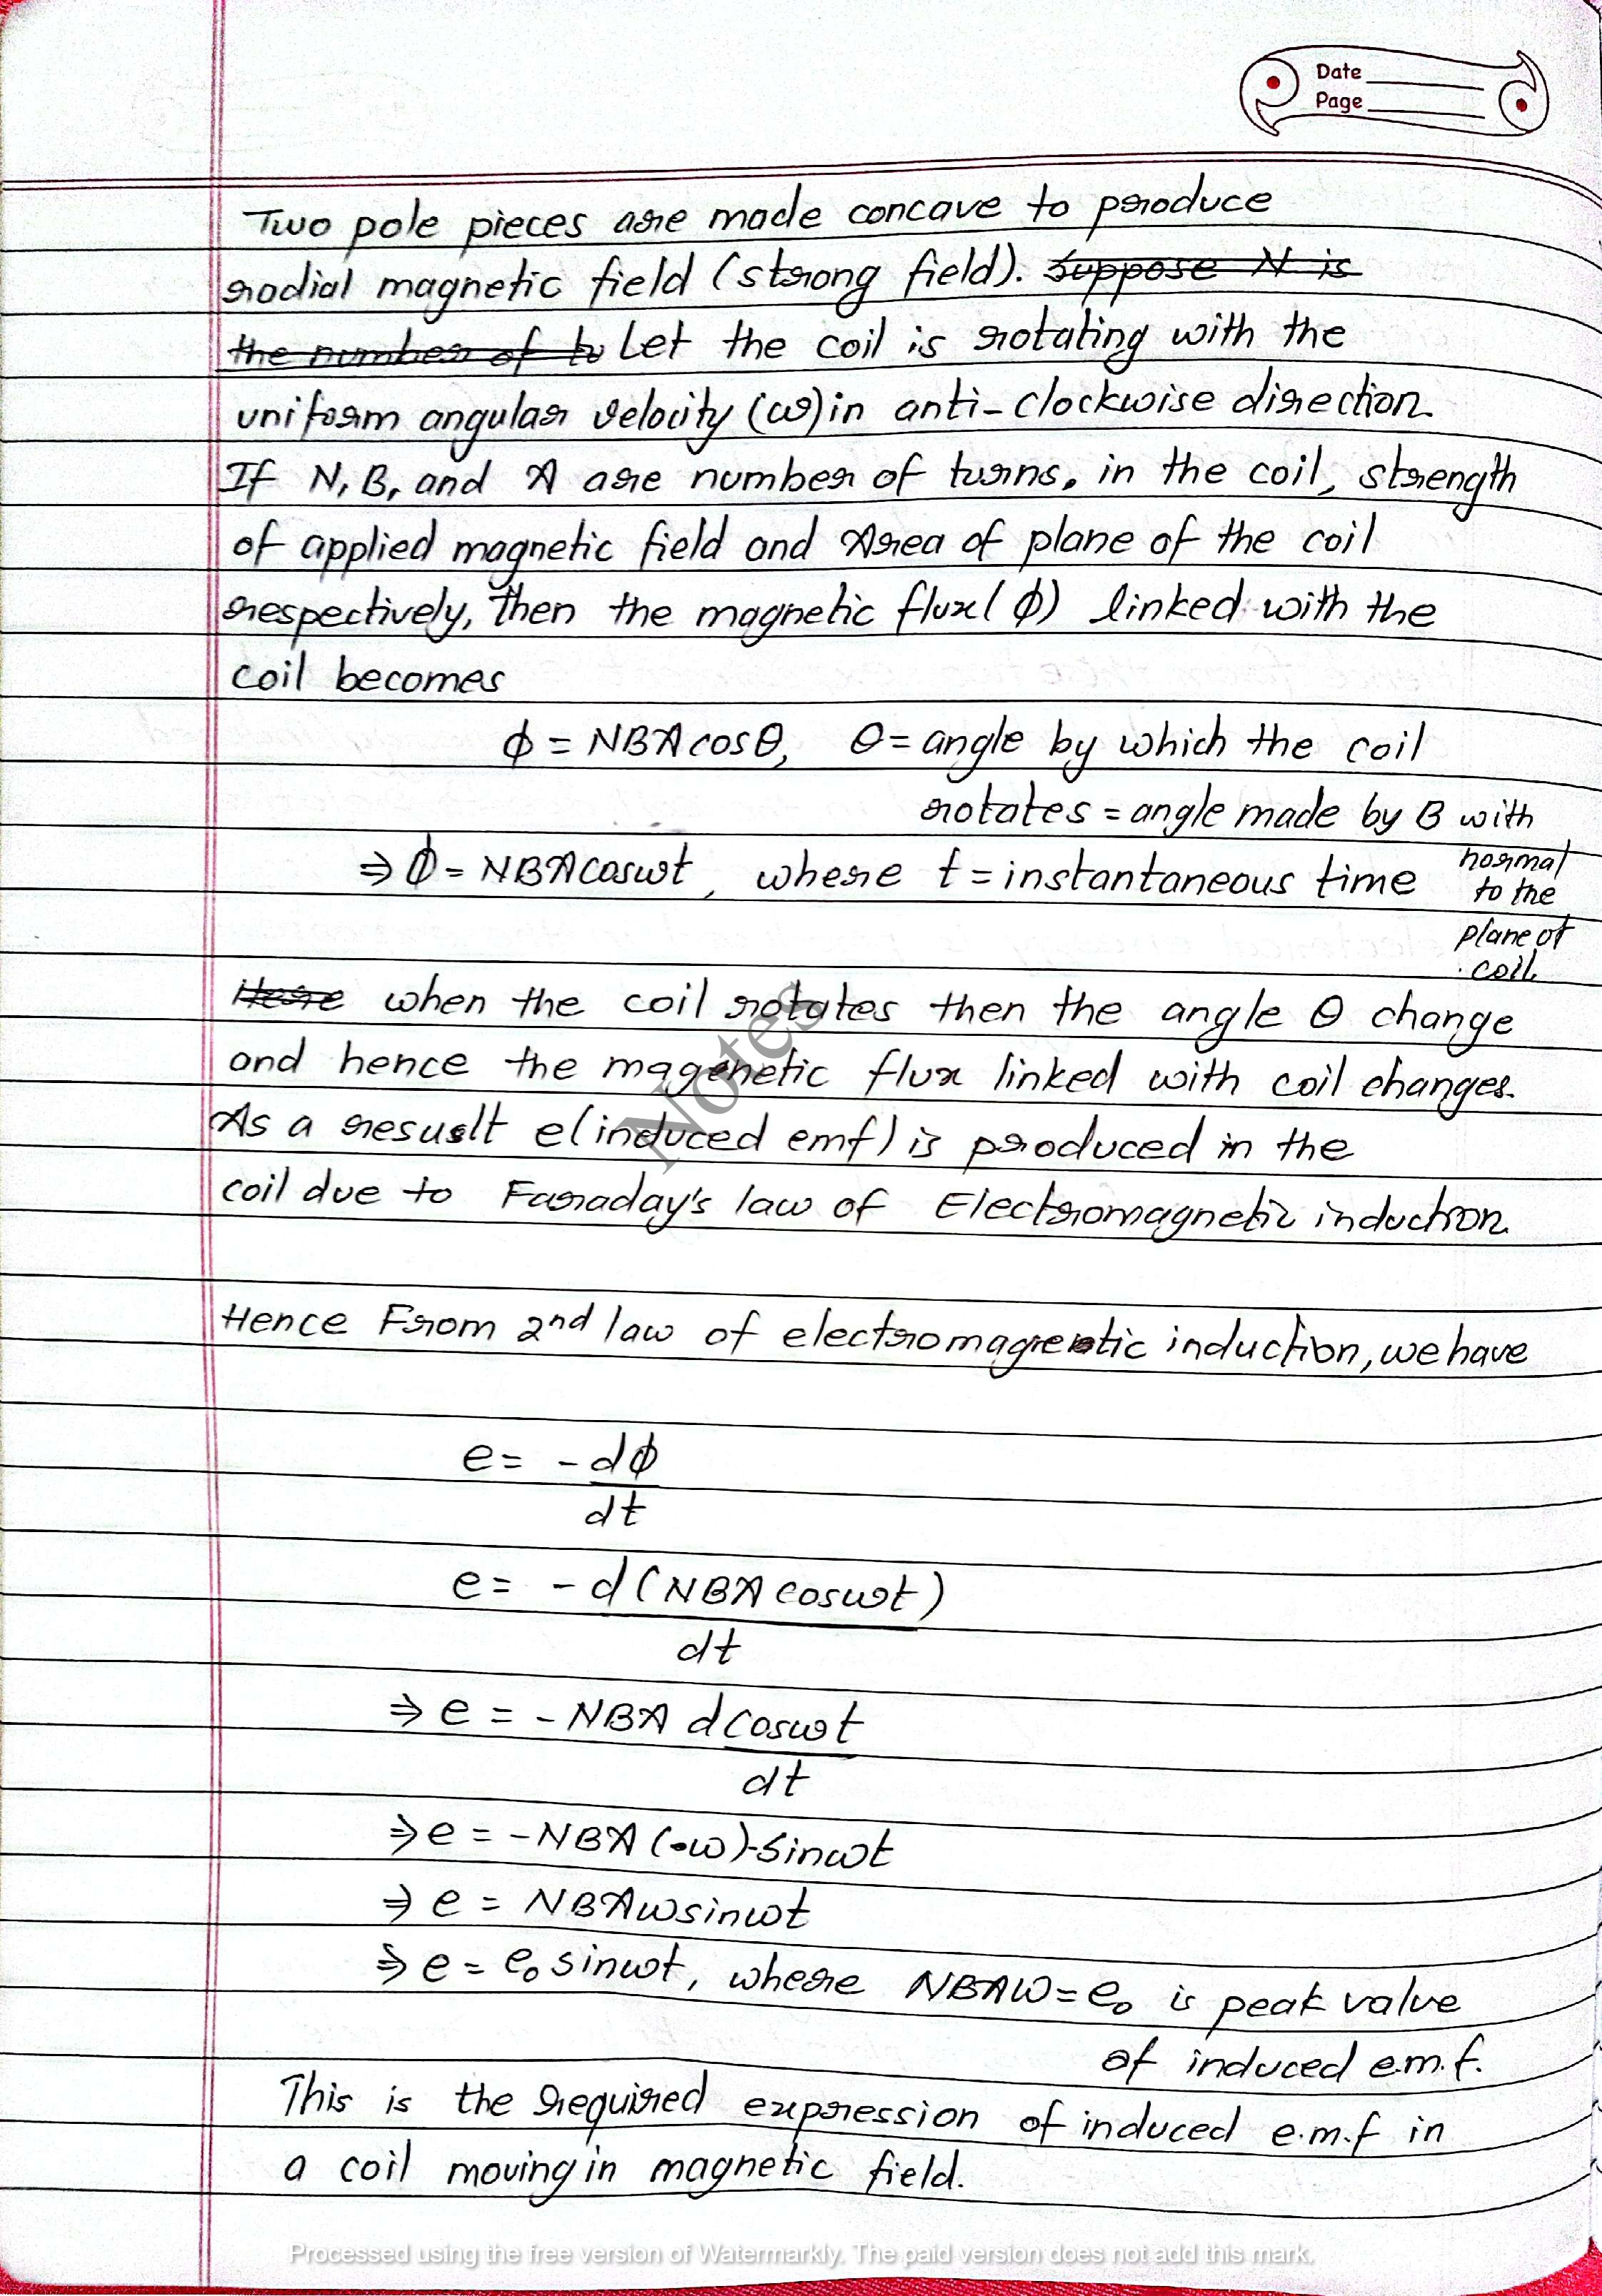 Date
Page
Two pole pieces are made concave to produce
radial magnetic field (strong field). Suppose N is
the number of tu Let the coil is rotating with the
uniform angular velocity (ω) in anti-clockwise direction.
If N, B, and A are number of turns, in the coil, strength
of applied magnetic field and Area of plane of the coil
respectively, Then the magnetic flux(ϕ) linked with the
coil becomes
ϕ = NBA cosθ, θ = angle by which the coil
rotates = angle made by B with
normal
to the
plane of
coil.
⇒ ϕ = NBA cosωt, where t = instantaneous time
Here when the coil rotates then the angle θ change
and hence the magenetic flux linked with coil changes.
As a resuslt e(induced emf) is produced in the
coil due to Faraday's law of Electromagnetic induction.
Hence From 2nd law of electromagnetic induction, we have
e = -dϕ
dt
e = -d(NBA cosωt)
dt
⇒ e = -NBA dcosωt
dt
⇒ e = -NBA (ω)-sinωt
⇒ e = NBAωsinωt
⇒ e = e₀ sinωt, where NBAω = e₀ is peak value
of induced e.m.f.
This is the required expression of induced e.m.f in
a coil moving in magnetic field.
Notes
Processed using the free version of Watermarkly. The paid version does not add this mark.